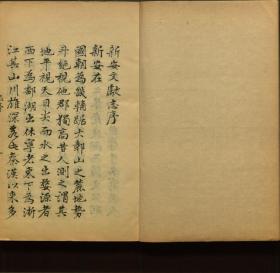 新安文獻志序
新安在
國朝為畿輔踞大鄣山之麓地勢
斗絕視他郡獨高昔人測之謂其
地平視天目尖而水之出婺源者
西下為鄱湖出休寧者東下為浙
江其山川雄深若此秦漢以來多